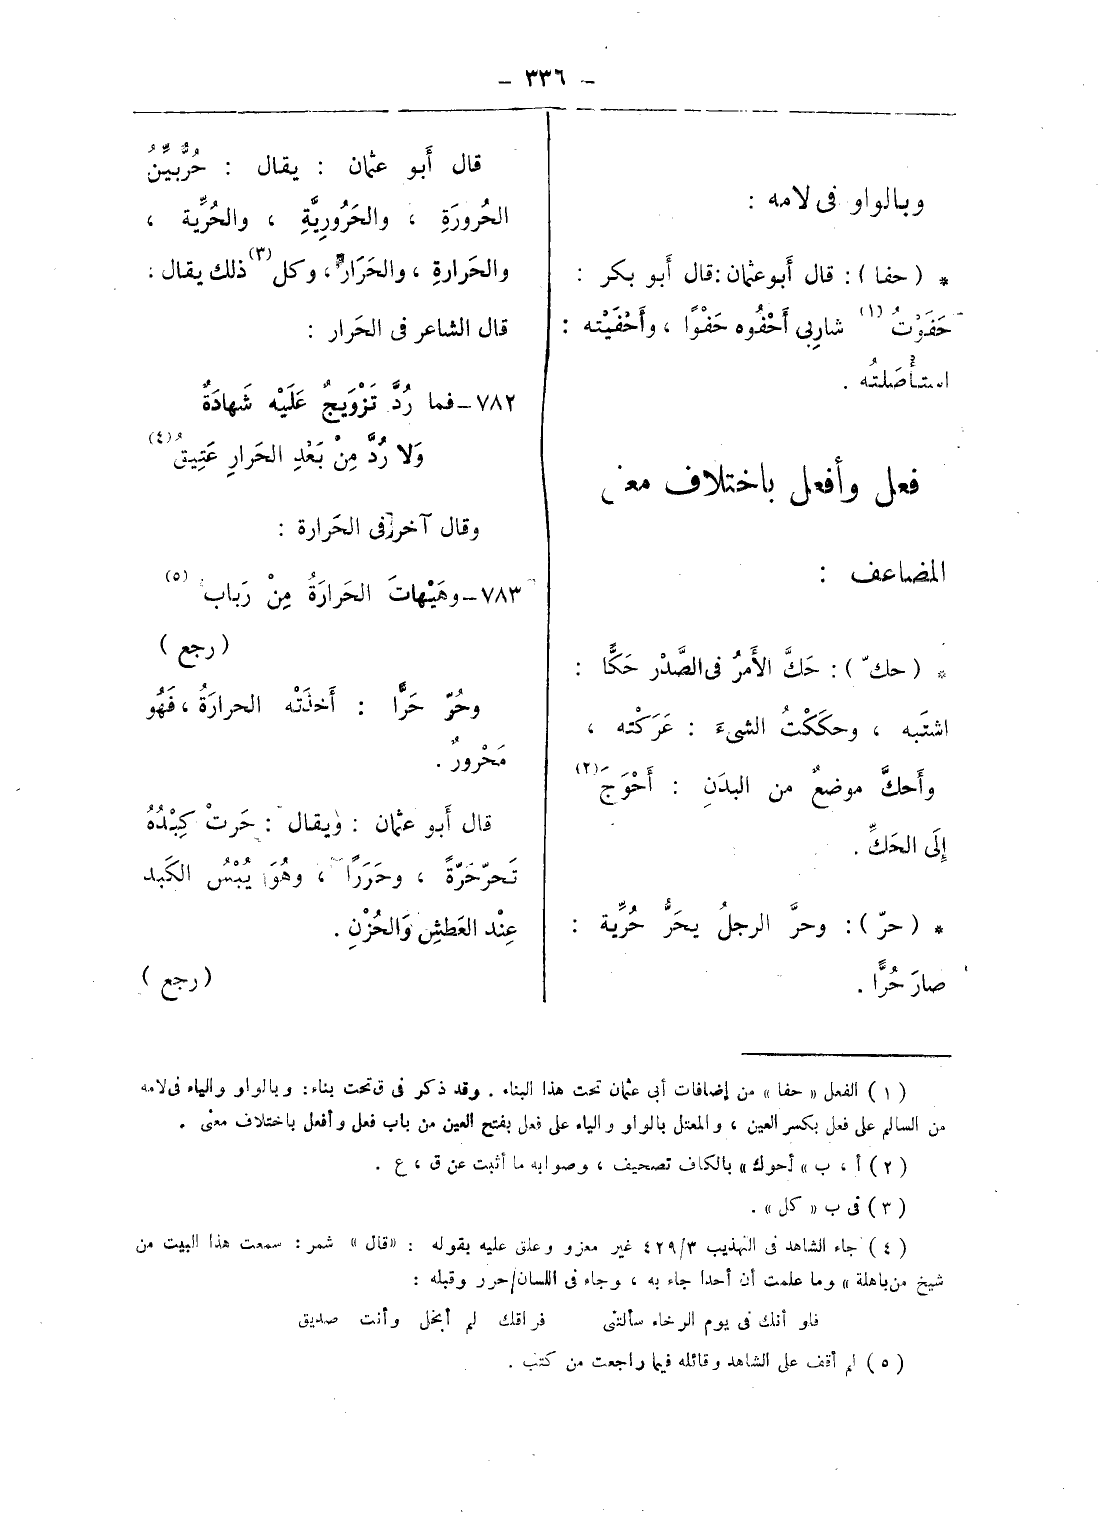 – ٣٣٦ –
وبالواو فى لامه :
* ( حفا ) : قال أَبو عثمان : قال أَبو بكر :
حَفَوْتُ (١) شاربِى أَحْفُوه حَفْوًا ، وأَحْفَيْته :
استأْصَلتُه .
فعل وأفعل باختلاف معنى
المضاعف :
* ( حكّ ) : حَكَّ الأَمرُ فى الصَّدْر حَكًّا :
اشتَبه ، وحكَكْتُ الشىءَ : عَرَكْته ،
وأَحكَّ موضعٌ من البدَنِ : أَحْوَجَ (٢)
إِلَى الحَكِّ .
* ( حرّ ) : وحرَّ الرجلُ يحَرُّ حُرِّية :
صارَ حُرًّا .
قال أَبو عثمان : يقال : حُرٌّ بيِّنُ
الحُرورَةِ ، والحَرُورِيَّةِ ، والحُرِّية ،
والحَرارةِ ، والحَرَار ، وكل (٣) ذلك يقال :
قال الشاعر فى الحَرار :
٧٨٢ – فما رُدَّ تَزْوِيجٌ عَلَيْه شَهادَةٌ
وَلا رُدَّ مِنْ بَعْدِ الحَرارِ عَتِيقُ (٤)
وقال آخر فى الحَرارة :
٧٨٣ – وهَيْهاتَ الحَرارَةُ مِنْ رَباب (٥)
( رجع )
وحُرّ حَرًّا : أَخذَتْه الحرارَةُ ، فَهُو
مَحْرورٌ .
قال أَبو عثمان : ويقال : حَرتْ كِبْدُهُ
تَحرّ حَرّةً ، وحَرَرًا ، وهُوَ يُبْسُ الكَبد
عِنْد العَطشِ وَالحُزْنِ .
( رجع )
( ١ ) الفعل « حفا » من إضافات أبى عثمان تحت هذا البناء . وقد ذكر فى ق تحت بناء : وبالواو والياء فى لامه
من السالم على فعل بكسر العين ، والمعتل بالواو والياء على فعل بفتح العين من باب فعل وأفعل باختلاف معنى .
( ٢ ) أ ، ب « أحوك » بالكاف تصحيف ، وصوابه ما أثبت عن ق ، ع .
( ٣ ) فى ب « كل » .
( ٤ ) جاء الشاهد فى التهذيب ٤٢٩/٣ غير معزو وعلق عليه بقوله : « قال » شمر : سمعت هذا البيت من
شيخ من باهلة » وما علمت أن أحدا جاء به ، وجاء فى اللسان/حرر وقبله :
فلو أنك فى يوم الرخاء سألتنى فراقك لم أبخل وأنت صديق
( ٥ ) لم أقف على الشاهد وقائله فيما راجعت من كتب .